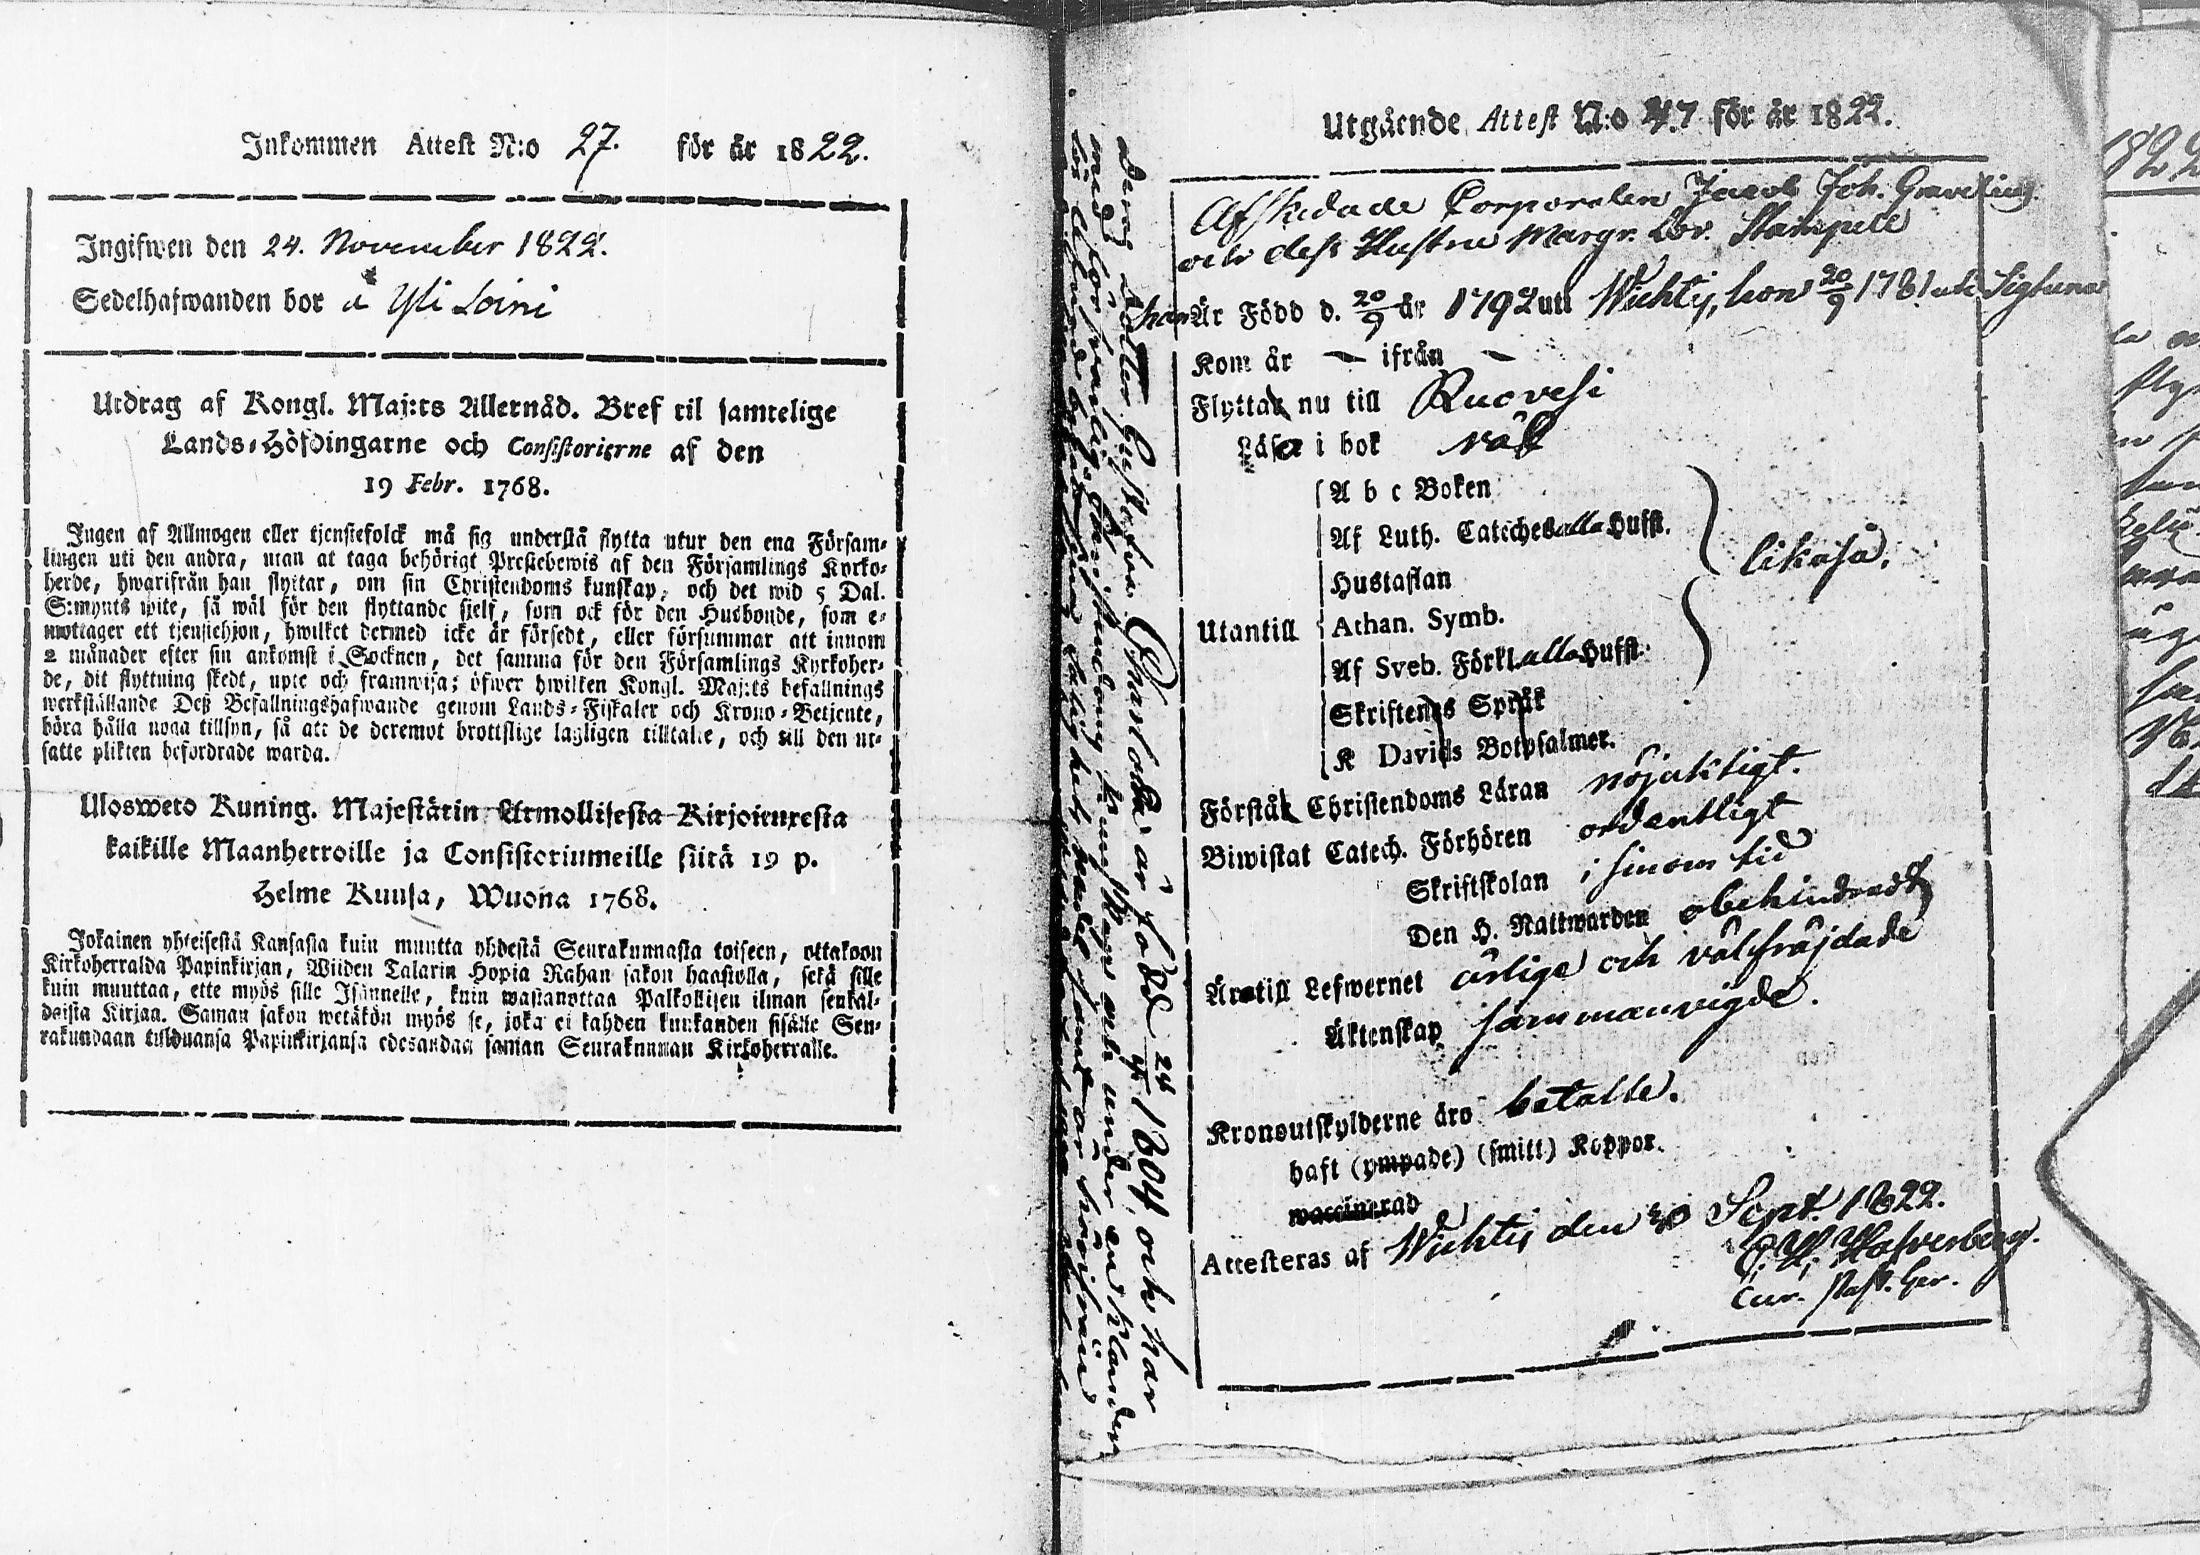 Inkommen Attest N:o 27. för år 1822.
Ingifwen den 24. November 1822.
Sedelhafwanden bor å Yli Loini
Utdrag af Kongl. Maj:ts Allernåd. Bref til samtelige
Lands-Höfdingarne och Consistorierne af den
19 Febr. 1768.
Ingen af Allmogen eller tjenstefolck må sig understå flytta utur den ena Försam-
lingen uti den andra, utan at taga behörigt Prestebewis af den Församlings Kyrko-
herde, hwarifrån han flyttar, om sin Christendoms kunskap, och det wid 5 Dal.
S:mynts wite, så wäl för den flyttande sjelf, som ock för den Husbonde, som e-
mottager ett tjenstehjon, hwilket dermed icke är försedt, eller försummar att innom
2 månader efter sin ankomst i Socknen, det samma för den Församlings Kyrkoher-
de, dit flyttning skedt, upte och framwisa; öfwer hwilken Kongl. Maj:ts befallnings
werkställande Deß Befallningshafwande genom Lands-Fiskaler och Krono-Betjente,
böra hålla noga tillsyn, så att de deremot brottslige lagligen tilltalte, och till den ut-
satte plikten befordrade warda.
Ulosweto Kuning. Majestätin Armollisesta Kirjoituxesta
kaikille Maanherroille ja Consistoriumeille siitä 19 p.
Helme Kuusa, Wuona 1768.
Jokainen yhteisestä Kansasta kuin muutta yhdestä Seurakunnasta toiseen, ottakoon
Kirkoherralda Papinkirjan, Wiiden Talarin Hopia Rahan sakon haastolla, sekä sille
kuin muuttaa, ette myös sille Isännelle, kuin wastanottaa Palkollisen ilman senkal-
daista Kirjaa. Saman sakon wetäkön myös se, joka ei kahden kuukanden sisälle Seu-
rakundaan tulduansa Papinkirjansa edesandaa saman Seurakunnan Kirkoherralle.
Utgående Attest N:o 47 för år 1822.
Afskedade Corporalen Jacob Joh. Graveling
och dess Hustru Margr. Lov. Stampell
han Är Född d. 20/9 år 1792 uti Wichtis, hon 20/9 1781 uti Sigtuna
Kom år — ifrån —
Flyttar nu till Ruovesi
Läser i bok väl
A b c Boken
Af Luth. Catches alla Hufst.
Hustaflan
likaså.
Utantill
Athan. Symb.
Af Sveb. Förkl. alla Hufst.
Skriftenes Språk
K Davids Botpsalmer.
Förstår Christendoms Läran nöjaktigt.
Biwistat Catech. Förhören ordentligt
Skriftskolan i sinom tid
Den H. Nattwarden obehindradt
Äro till Lefwernet ärlige och välfräjdade
Äktenskap sammanvigde.
Kronoutskylderne äro betalte.
haft (ympade) (smitt) Koppor.
waccinerad
Attesteras af Wichtis den 30 Sept. 1822.
Hafverberg.
Cur. Past. Ger.
Deras dotter Gustava är född 24 1804 och har
med försvarlig Christendoms kunskap och under
1822